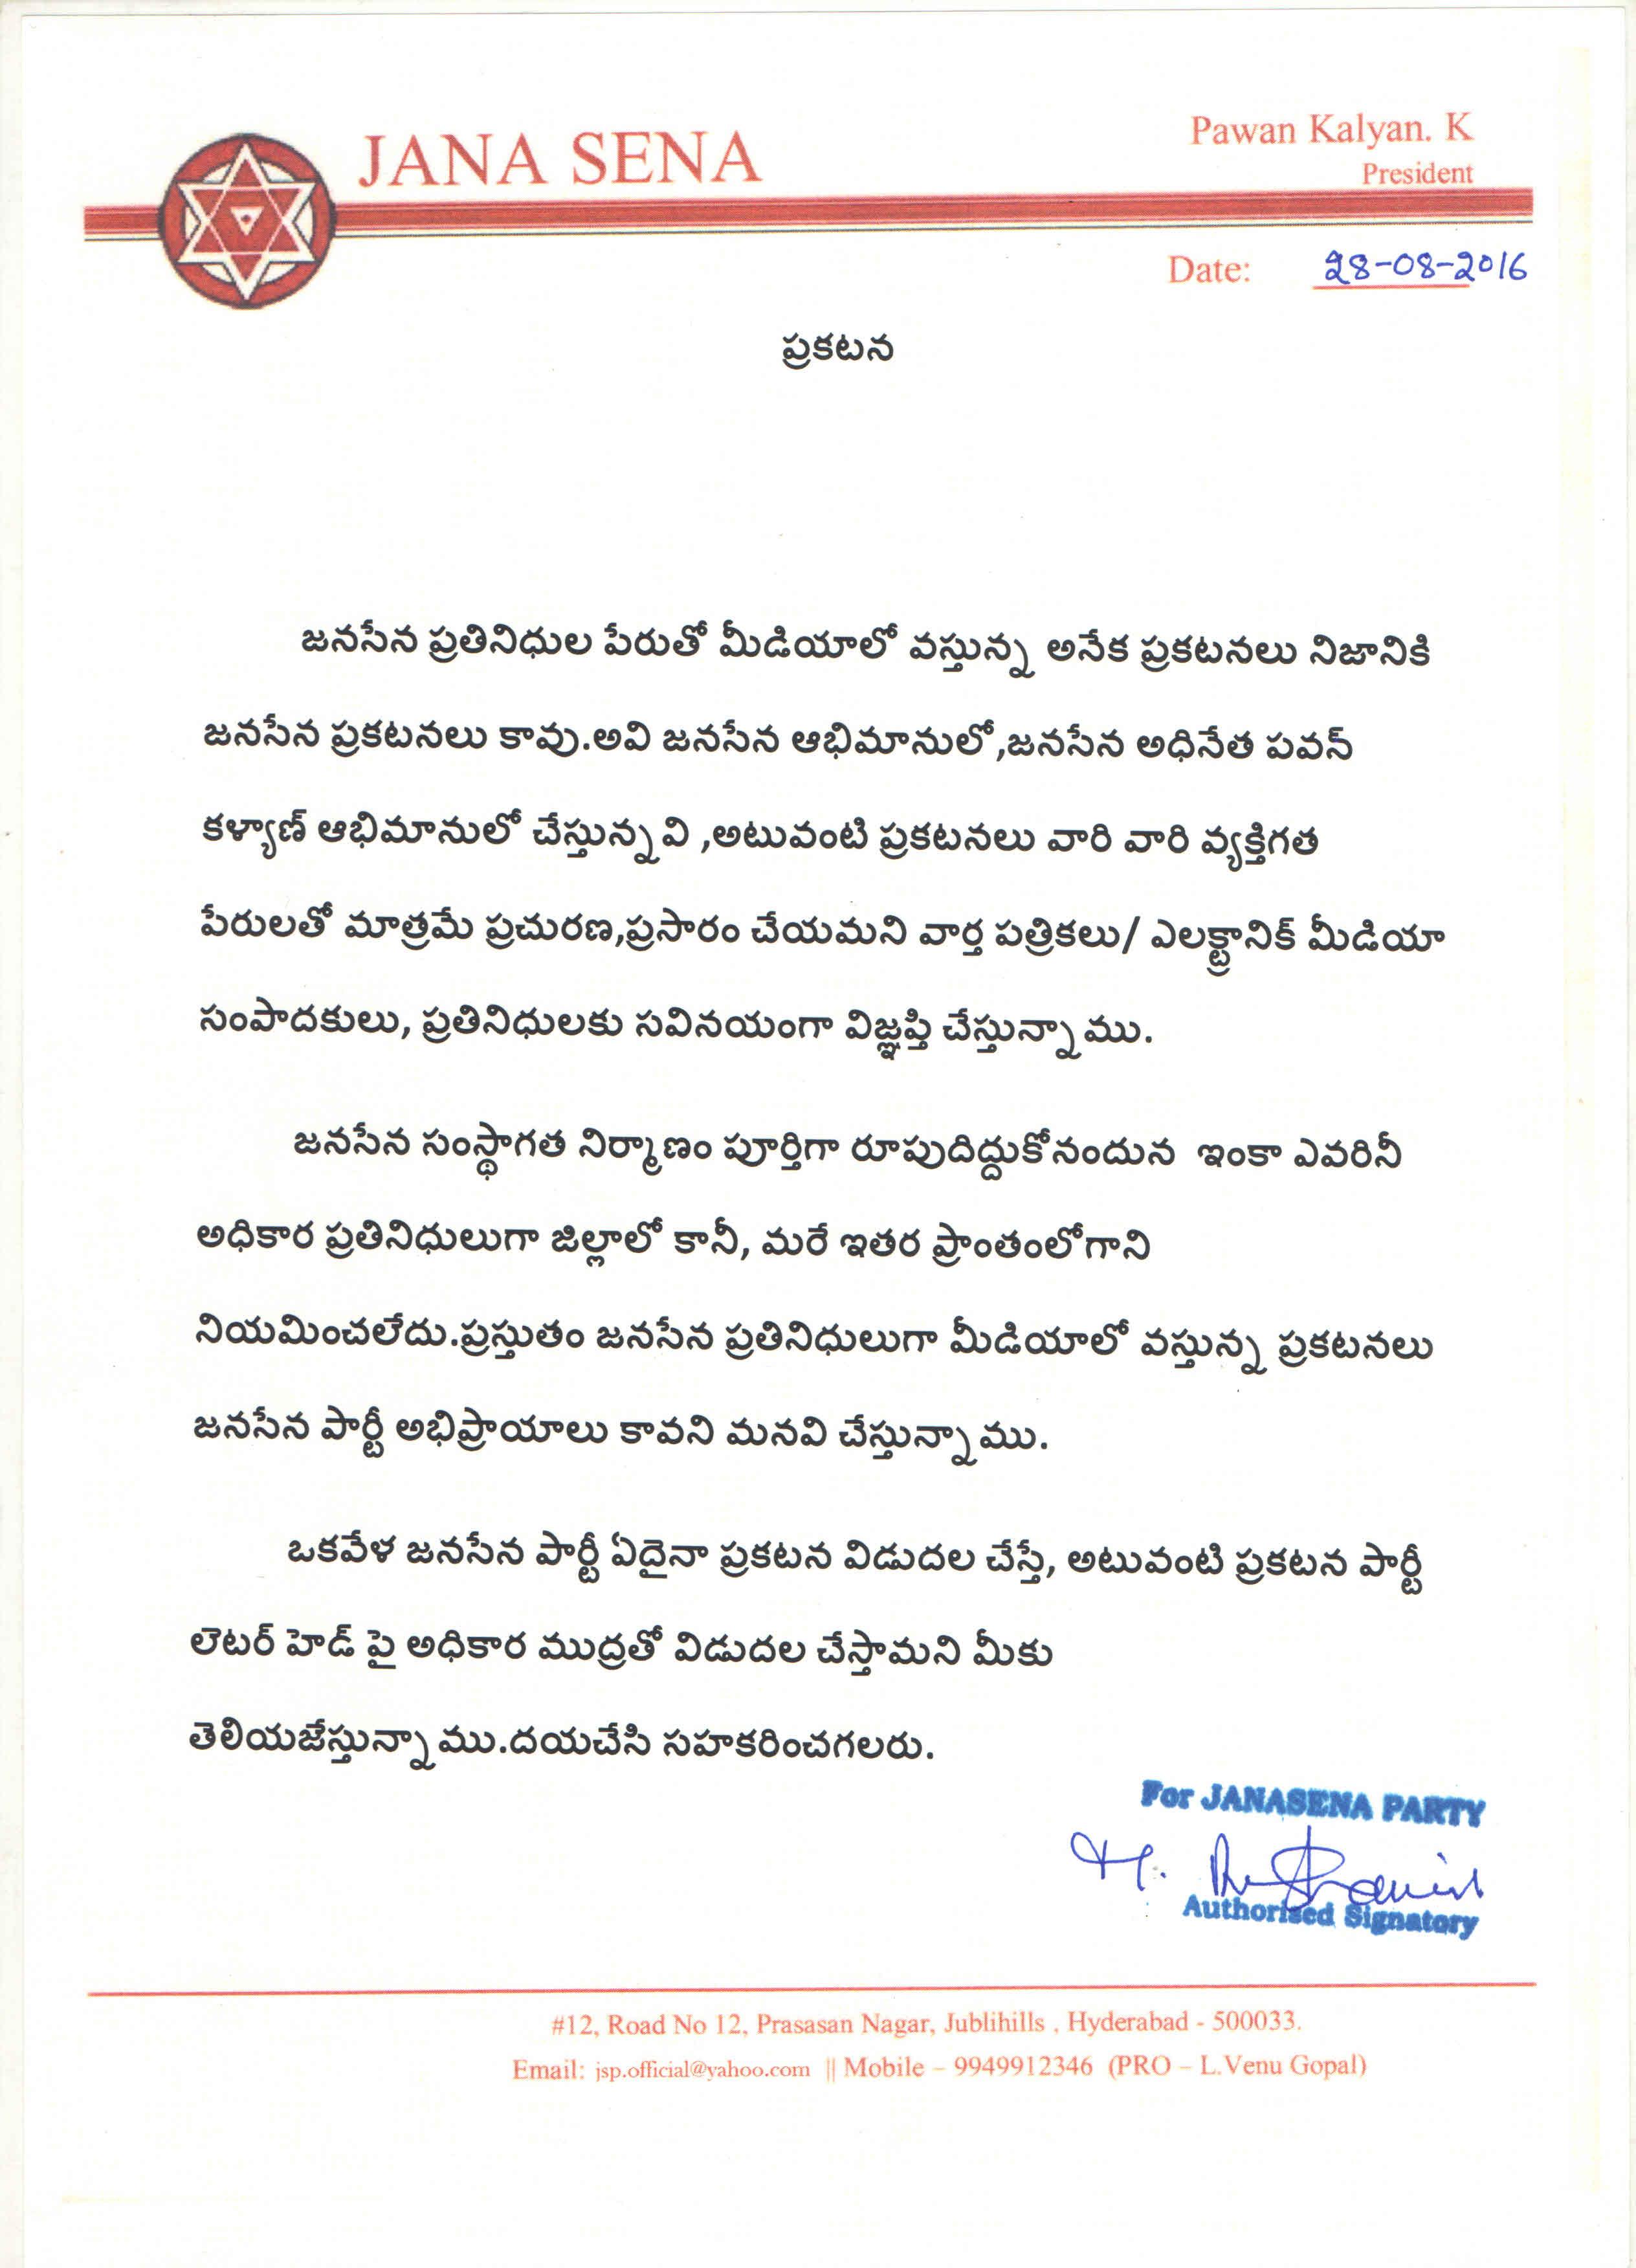 JANA SENA
Pawan Kalyan. K
President
Date: 28-08-2016
ప్రకటన
జనసేన ప్రతినిధుల పేరుతో మీడియాలో వస్తున్న అనేక ప్రకటనలు నిజానికి
జనసేన ప్రకటనలు కావు.అవి జనసేన ఆభిమానులో,జనసేన అధినేత పవన్
కళ్యాణ్ ఆభిమానులో చేస్తున్నవి ,అటువంటి ప్రకటనలు వారి వారి వ్యక్తిగత
పేరులతో మాత్రమే ప్రచురణ,ప్రసారం చేయమని వార్త పత్రికలు/ ఎలక్ట్రానిక్ మీడియా
సంపాదకులు, ప్రతినిధులకు సవినయంగా విజ్ఞప్తి చేస్తున్నాము.
జనసేన సంస్థాగత నిర్మాణం పూర్తిగా రూపుదిద్దుకోనందున ఇంకా ఎవరినీ
అధికార ప్రతినిధులుగా జిల్లాలో కానీ, మరే ఇతర ప్రాంతంలోగాని
నియమించలేదు.ప్రస్తుతం జనసేన ప్రతినిధులుగా మీడియాలో వస్తున్న ప్రకటనలు
జనసేన పార్టీ అభిప్రాయాలు కావని మనవి చేస్తున్నాము.
ఒకవేళ జనసేన పార్టీ ఏదైనా ప్రకటన విడుదల చేస్తే, అటువంటి ప్రకటన పార్టీ
లెటర్ హెడ్ పై అధికార ముద్రతో విడుదల చేస్తామని మీకు
తెలియజేస్తున్నాము.దయచేసి సహకరించగలరు.
For JANASENA PARTY
Authorised Signatory
#12, Road No 12, Prasasan Nagar, Jublihills , Hyderabad - 500033.
Email: jsp.official@yahoo.com || Mobile – 9949912346 (PRO – L.Venu Gopal)